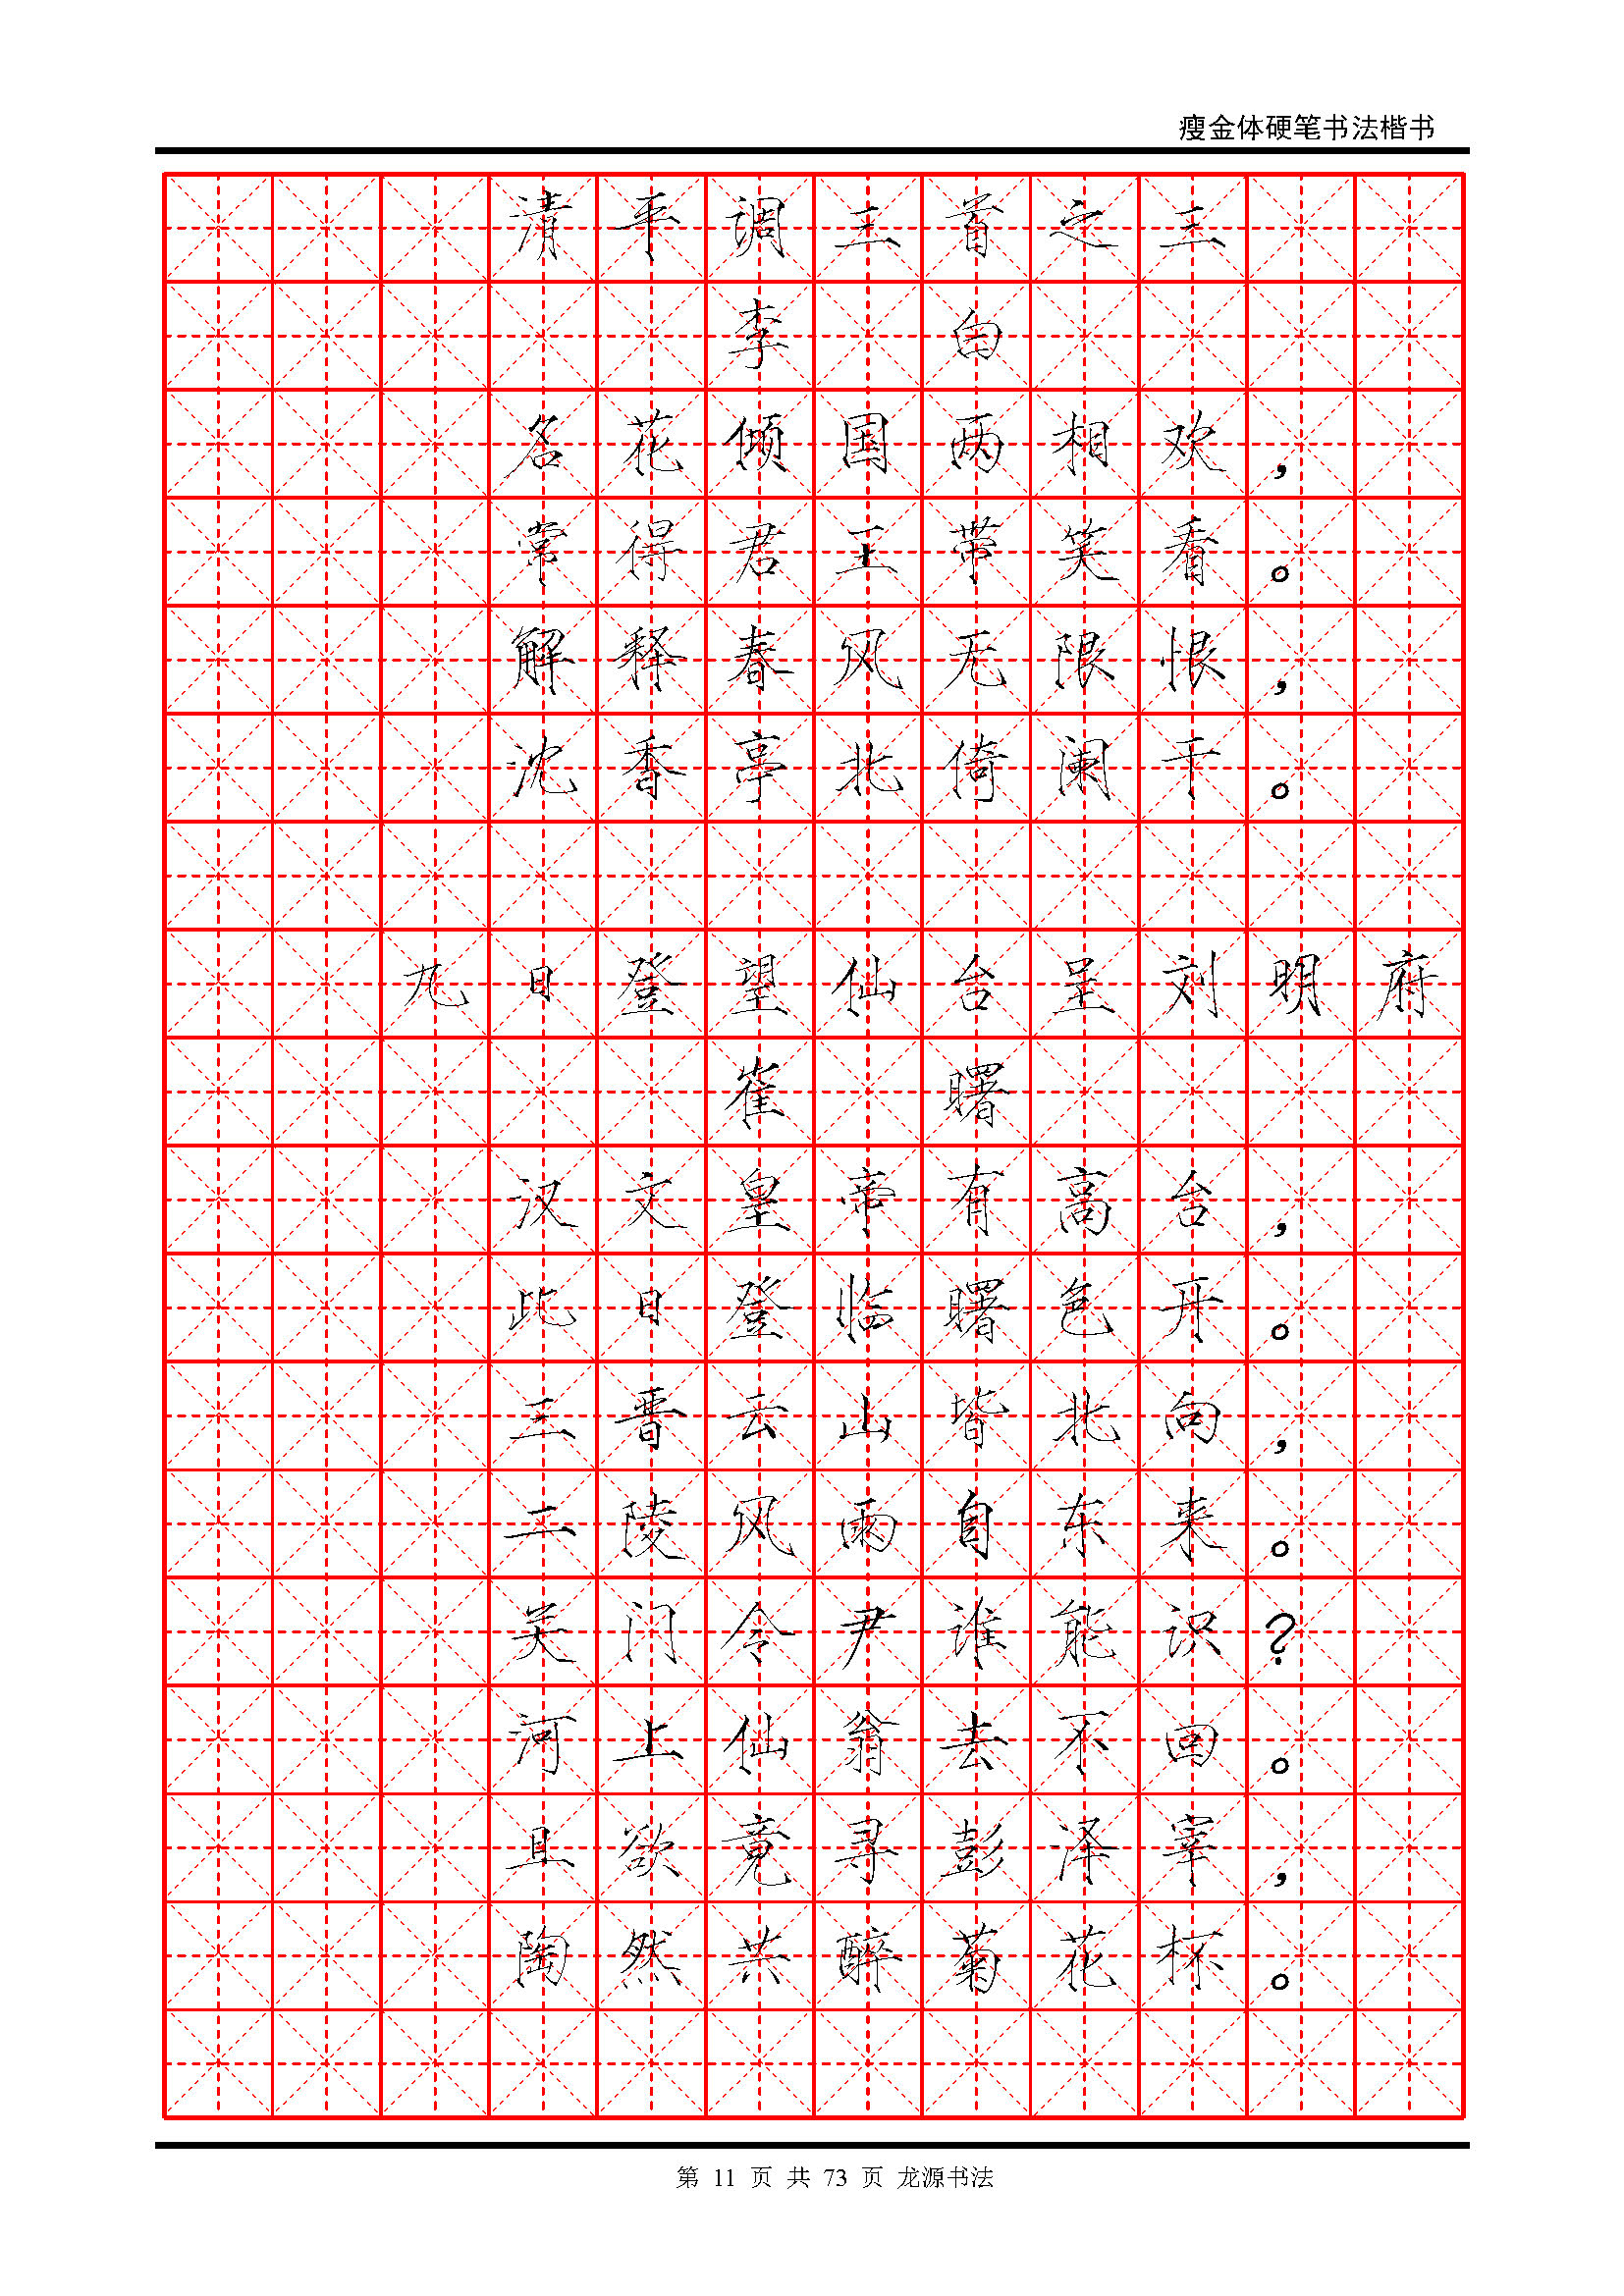 瘦金体硬笔书法楷书
清平调三首之三
李 白
名花倾国两相欢，
常得君王带笑看。
解释春风无限恨，
沈香亭北倚阑干。
九日登望仙台呈刘明府
崔 曙
汉文皇帝有高台，
此日登临曙色开。
三晋云山皆北向，
二陵风雨自东来。
关门令尹谁能识？
河上仙翁去不回。
且欲竟寻彭泽宰，
陶然共醉菊花杯。
第 11 页 共 73 页 龙源书法